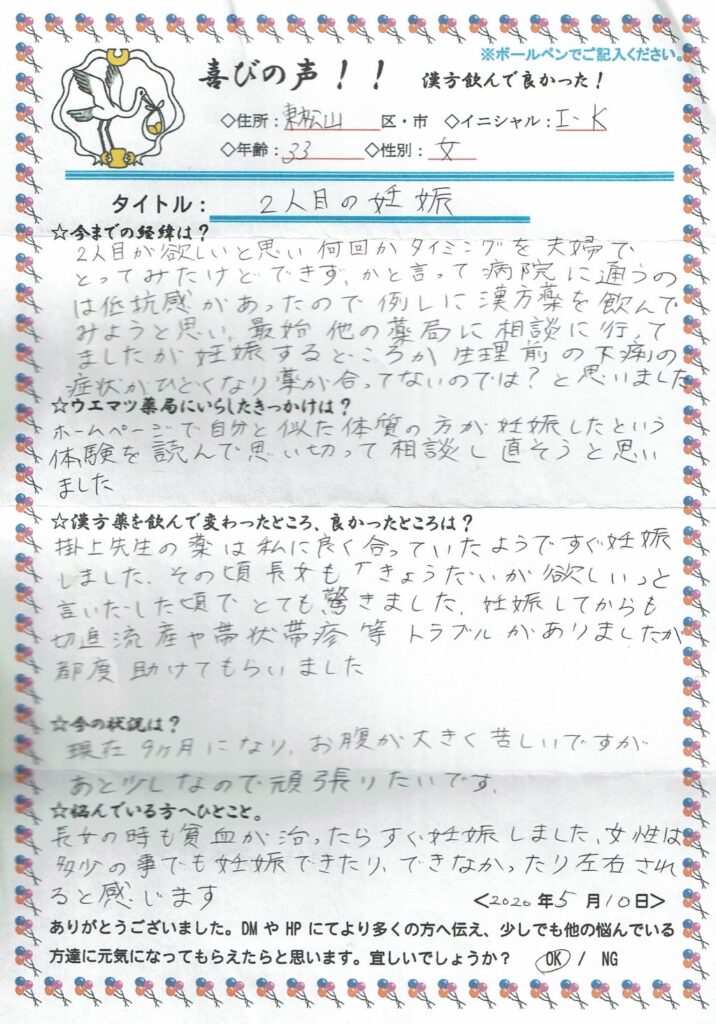 ※ボールペンでご記入ください。
喜びの声！！ 漢方飲んで良かった！
◇住所：東松山 区・市 ◇イニシャル：I・K
◇年齢：33 ◇性別：女
タイトル： 2人目の妊娠
☆今までの経緯は？
2人目が欲しいと思い何回かタイミングを夫婦で
とってみたけどできず、かと言って病院に通うの
は低抗感があったので例しに漢方薬を飲んで
みようと思い、最始他の薬局に相談に行って
ましたが妊娠するどころか生理前の下痢の
症状がひどくなり薬が合ってないのでは？と思いました
☆ウエマツ薬局にいらしたきっかけは？
ホームページで自分と似た体質の方が妊娠したという
体験を読んで思い切って相談し直そうと思い
ました
☆漢方薬を飲んで変わったところ、良かったところは？
掛上先生の薬は私に良く合っていたようですぐ妊娠
しました。その頃長女も「きょうだいが欲しい」と
言いだした頃でとても驚きました。妊娠してからも
切迫流産や帯状帯疹等トラブルがありましたが
都度助けてもらいました
☆今の状況は？
現在9ヶ月になり、お腹が大きく苦しいですが
あと少しなので頑張りたいです。
☆悩んでいる方へひとこと。
長女の時も貧血が治ったらすぐ妊娠しました、女性は
多少の事でも妊娠できたり、できなかったり左右され
ると感じます
<2020年5月10日>
ありがとうございました。DMやHPにてより多くの方へ伝え、少しでも他の悩んでいる
方達に元気になってもらえたらと思います。宜しいでしょうか？ OK / NG